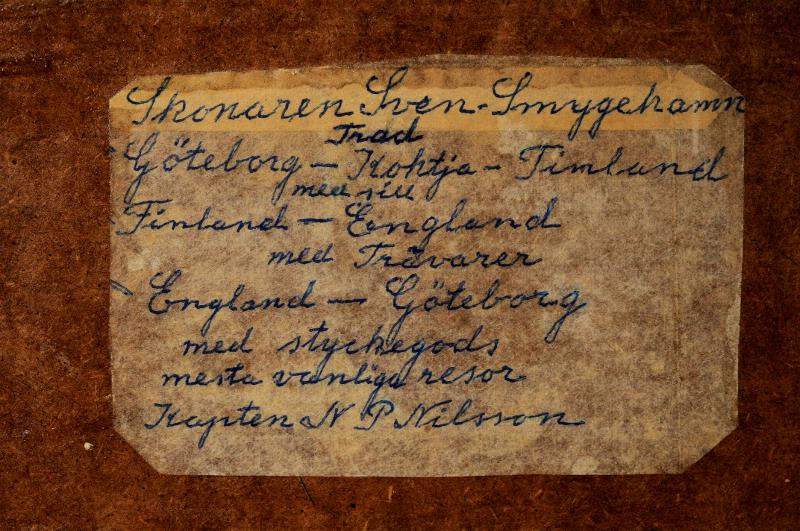 Skonaren Sven - Smygehamn
Trad
Göteborg - Kohtja - Finland
med sill
Finland - England
med Trävarer
England - Göteborg
med styckegods
mesta vanliga resor
Kapten N P Nilsson